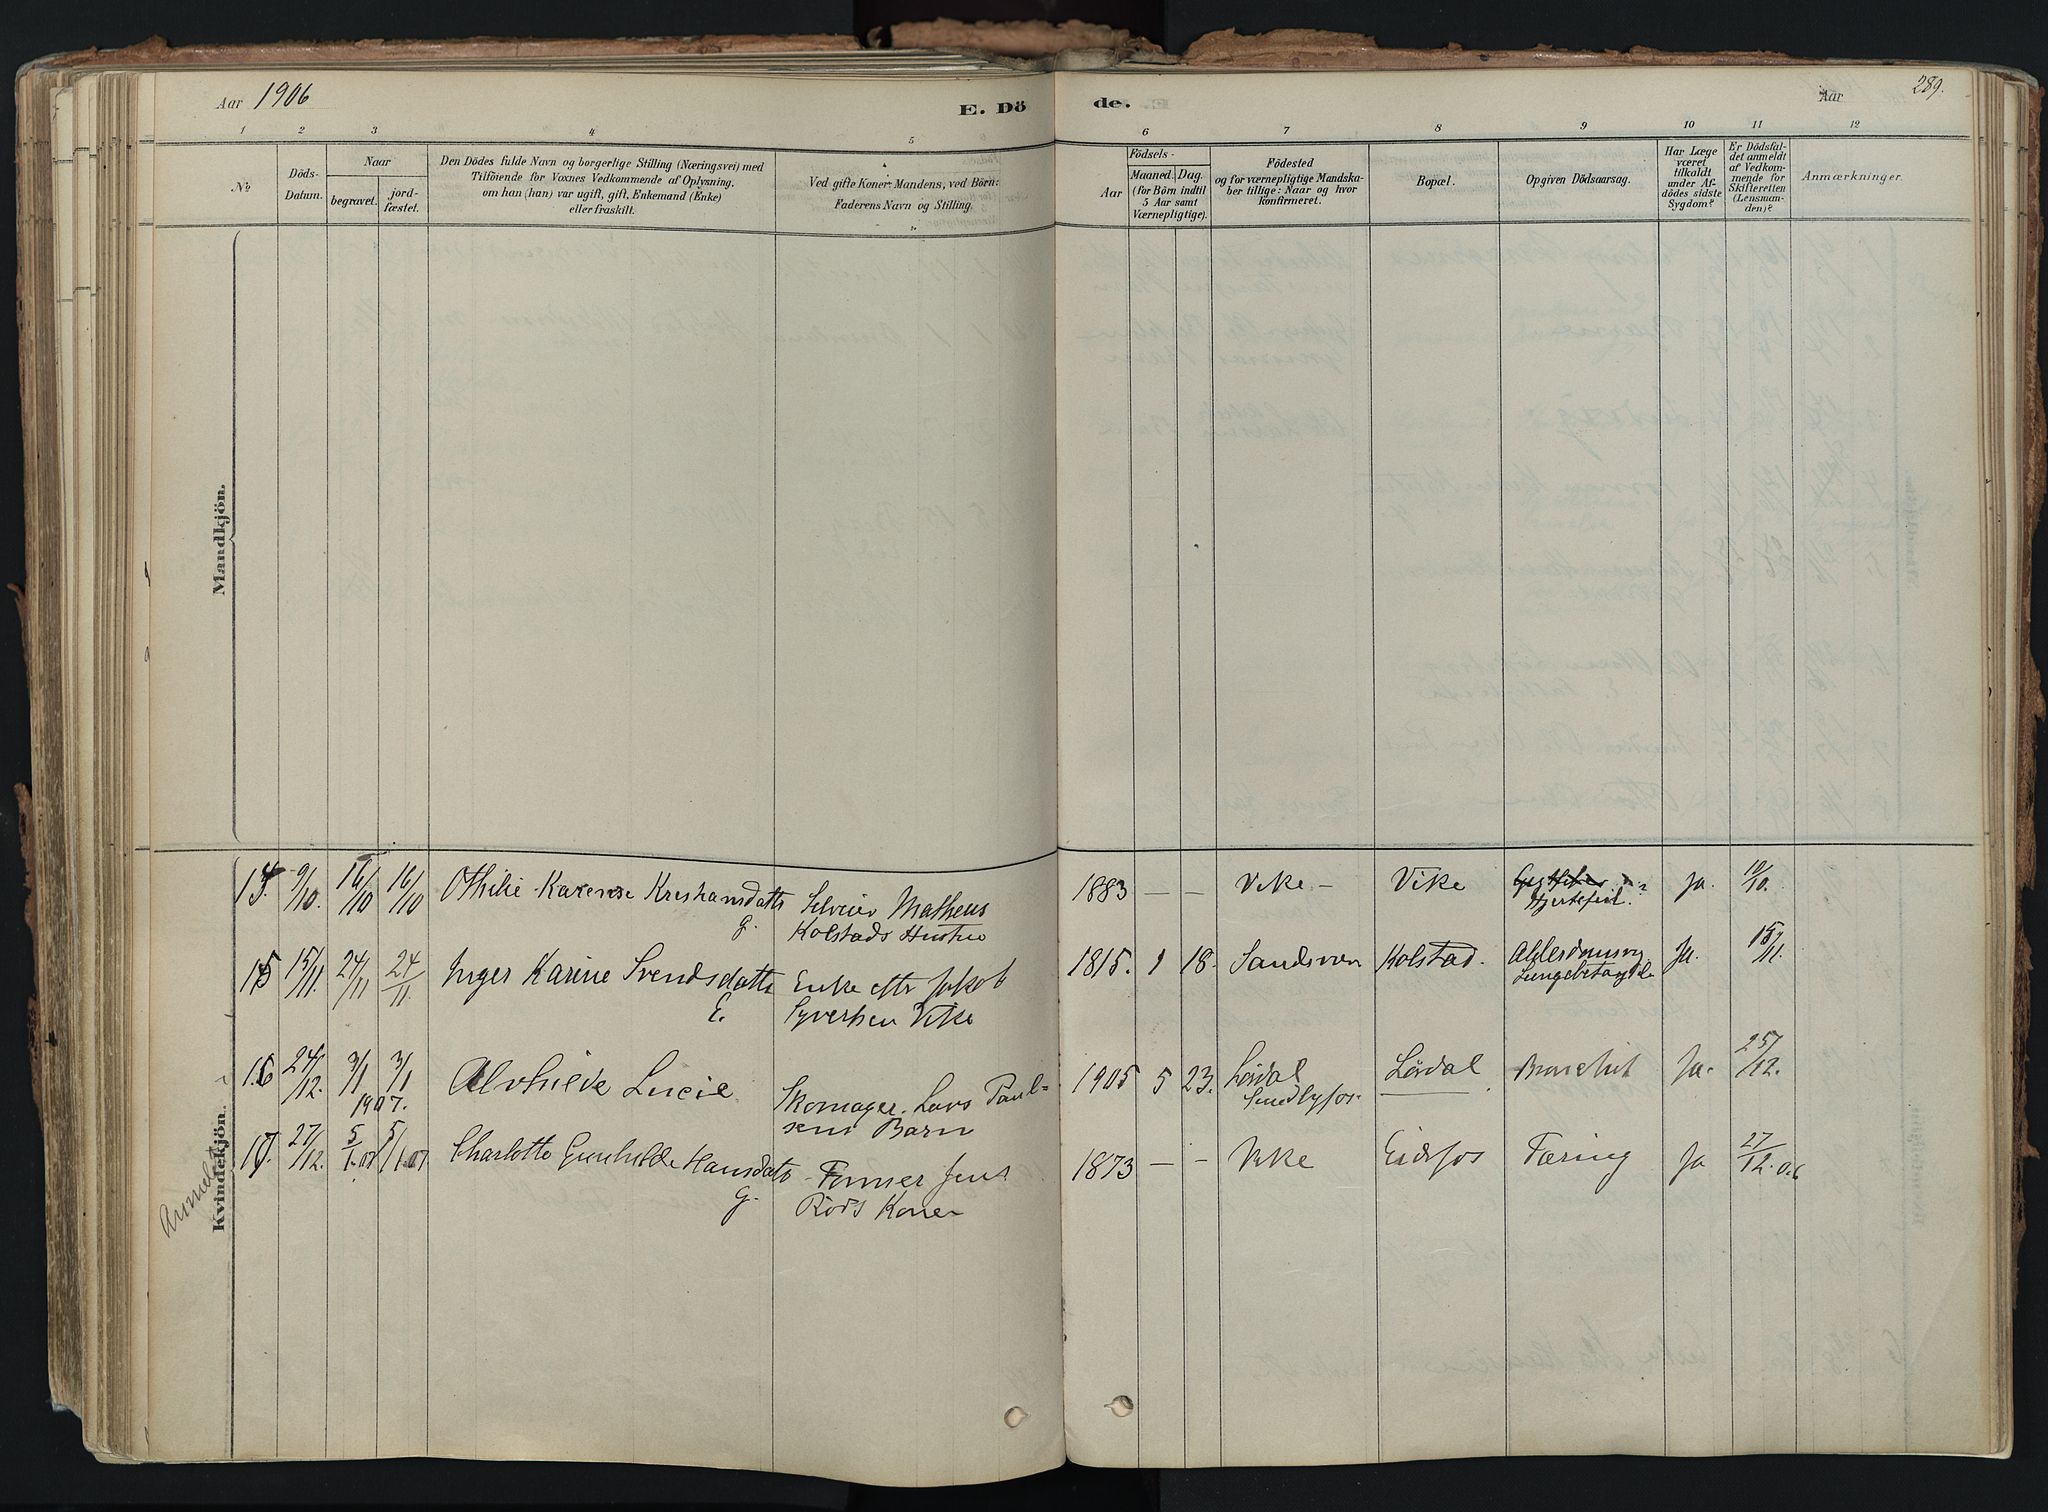 Aar 1906
E. Dö
de.
Aar
289.
1 2 3 4 5 6 7 8 9 10 11 12
№
Döds-
Datum.
Naar
begravet.
jord-
fæstet.
Den Dödes fulde Navn og borgerlige Stilling (Næringsvei) med
Tilföiende for Voxnes Vedkommende af Oplysning,
om han (hun) var ugift, gift, Enkemand (Enke)
eller fraskilt.
Ved gifte Koner: Mandens, ved Börn:
Faderens Navn og Stilling.
Födsels-
Aar
Maaned. Dag.
(for Börn indtil
5 Aar samt
Værnepligtige).
Födested
og for værnepligtige Mandska-
ber tillige: Naar og hvor
konfirmeret.
Bopæl.
Opgiven Dödsaarsag.
Har Læge
været
tilkaldt
under Af-
dödes sidste
Sygdom?
Er Dödsfal-
det anmeldt
af Vedkom-
mende for
Skifteretten
(Lensman-
den)?
Anmærkninger.
Mandkjön.
Kvindekjön.
14 9/10. 16/10 16/10 Othilie Karense Kreshansdatt
G.
Selveier Matheus
Kolstads Hustru
1883 — — Vike — Vike
Hjertefeil.
Ja. 10/10.
15 15/11. 24/11 24/11. Inger Karine Svendsdatt
E.
Enke eftr Jakob
Syversen Vike
1815. 1 18. Kolstad.
Alderdomsvag
Lungebetændelse
Ja. 15/11.
16 24/12. 3/1 3/1
1907.
Alvhilde Lucie
Skomager Lars Paul-
sens Barn
1905 5 23. Lördal
Lördal Bronchit Ja. 25/12.
17. 27/12. 5/1.07 5/1.07 Charlotte Gunhilde Hansdatt
G.
Former Jens
Röds Kone
1873 — — Vike Eidsfos Tæring Ja 27/12.06